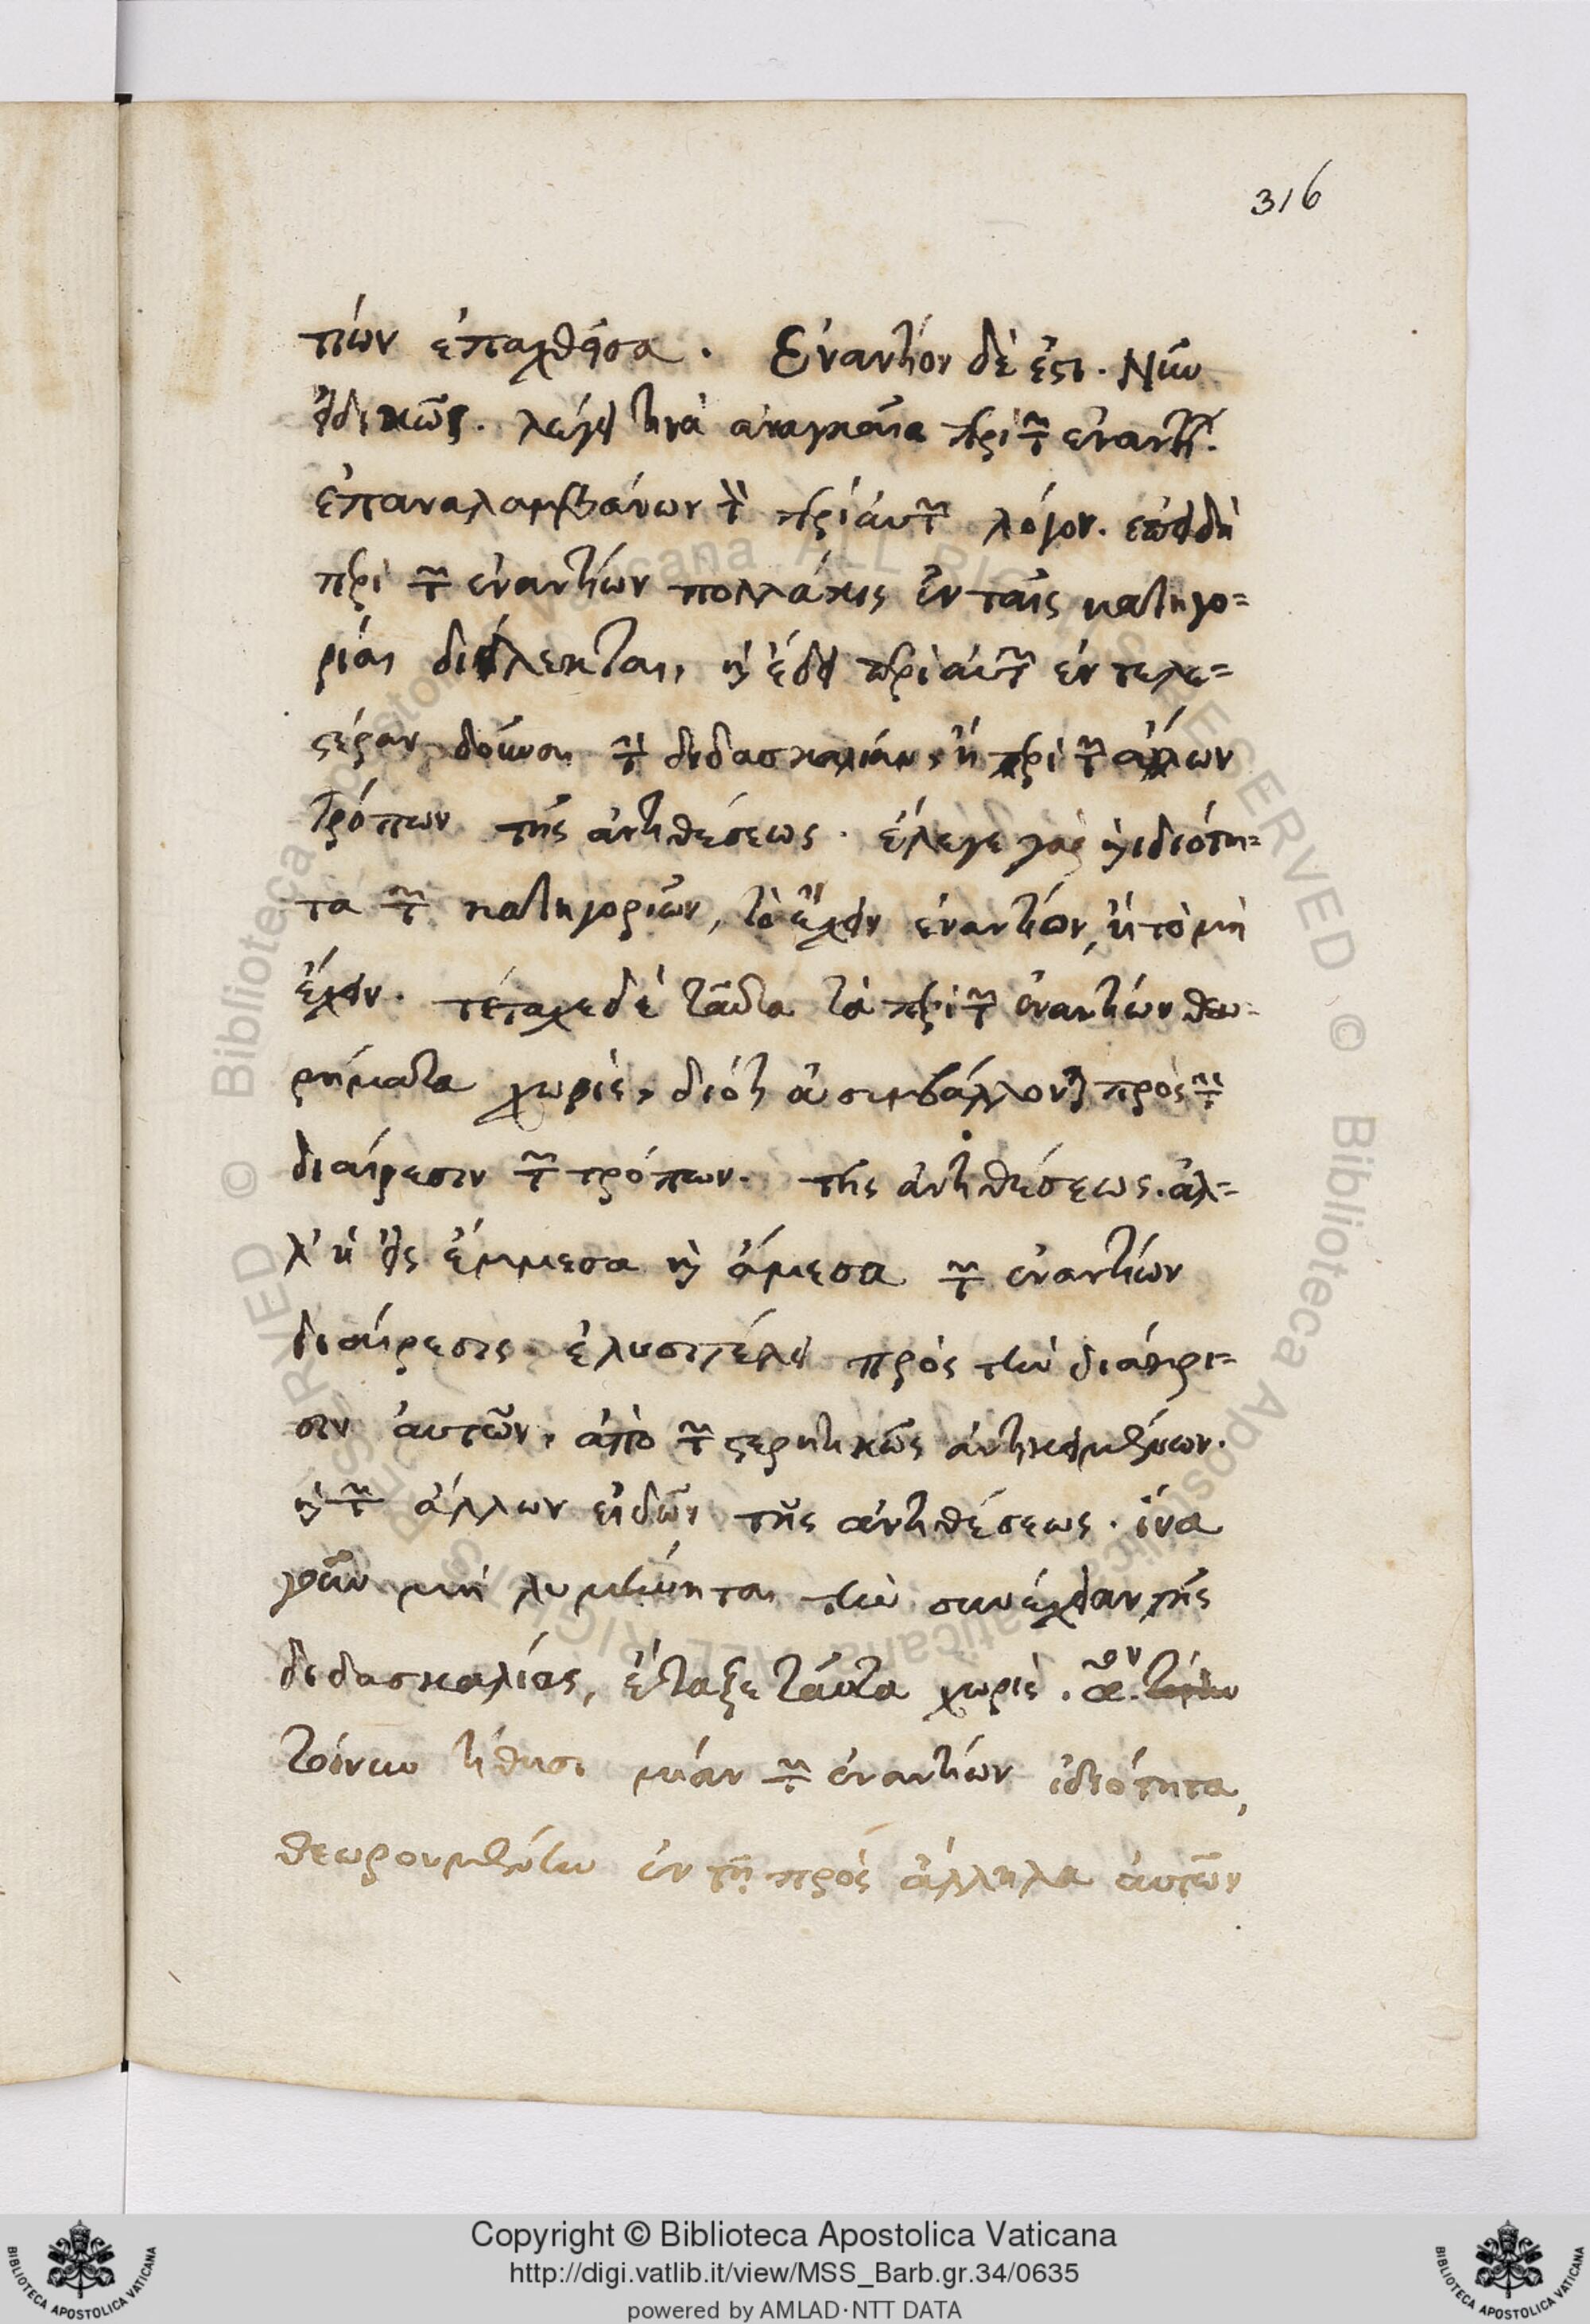 316
τίων ἐπαχθεῖσα. Ἐναντίον δέ ἐστι. Νῦν
εἰδικῶς. λέγει τινὰ ἀναγκαῖα περὶ τῶν ἐναντίων.
ἐπαναλαμβάνων τὸν περὶ αὐτῶν λόγον. ἐπειδὴ
περὶ τῶν ἐναντίων πολλάκις ἐν ταῖς κατηγο=
ρίαις διείλεκται, καὶ ἔδει περὶ αὐτῶν ἐντελε=
στέραν δοῦναι τὴν διδασκαλίαν, ἢ περὶ τῶν ἄλλων
τρόπων τῆς ἀντιθέσεως. ἔλεγε γὰρ καὶ ἰδιότη=
τα τῶν κατηγοριῶν, τὸ ἔχειν ἐναντίον, ἢ τὸ μὴ
ἔχειν. τέταχε δὲ ταῦτα τὰ περὶ τῶν ἐναντίων θεω=
ρήματα χωρὶς, διότι οὐ συμβάλλονται πρὸς τὴν
διαίρεσιν τῶν τρόπων. τῆς ἀντιθέσεως. ἀλ=
λ' ἡ εἰς ἔμμεσα καὶ ἄμεσα τῶν ἐναντίων
διαίρεσις. ἐλυσιτέλει πρὸς τὴν διάκρι=
σιν αὐτῶν, ἀπὸ τῶν στερητικῶς ἀντικειμένων.
καὶ τῶν ἄλλων εἰδῶν τῆς ἀντιθέσεως. ἵνα
γοῦν μὴ λυμαίνηται τὴν συνέχειαν τῆς
διδασκαλίας, ἔταξε ταῦτα χωρὶς.
τοίνυν τίθησι μίαν τῶν ἐναντίων ἰδιότητα,
θεωρουμένην ἐν τῇ πρὸς ἄλληλα αὐτῶν
Copyright © Biblioteca Apostolica Vaticana
http://digi.vatlib.it/view/MSS_Barb.gr.34/0635
powered by AMLAD·NTT DATA
BIBLIOTECA APOSTOLICA VATICANA
BIBLIOTECA APOSTOLICA VATICANA